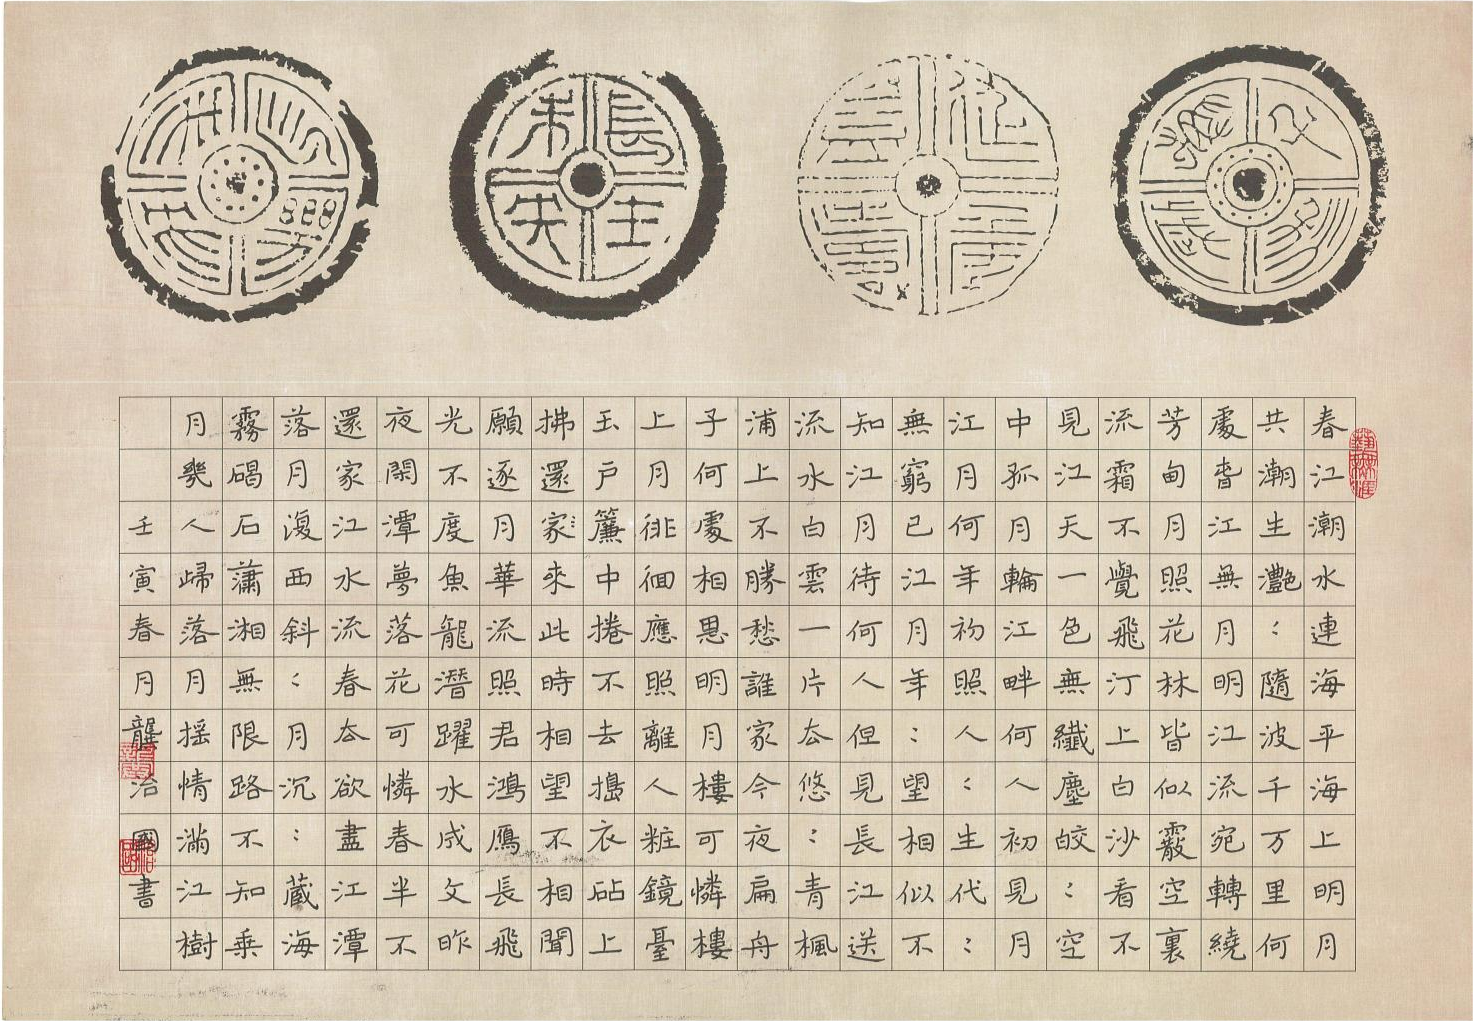 延年益壽
長生未央
春江潮水連海平海上明月
共潮生灩:隨波千万里何
處春江無月明江流宛轉繞
芳甸月照花林皆似霰空裏
流霜不覺飛汀上白沙看不
見江天一色無纖塵皎:空
中孤月輪江畔何人初見月
江月何年初照人:生代:
無窮已江月年:望相似不
知江月待何人但見長江送
流水白雲一片去悠:青楓
浦上不勝愁誰家今夜扁舟
子何處相思明月樓可憐樓
上月徘徊應照離人粧鏡臺
玉戶簾中捲不去搗衣砧上
拂還家來此時相望不相聞
願逐月華流照君鴻鴈長飛
光不度魚龍潛躍水成文昨
夜閑潭夢落花可憐春半不
還家江水流春去欲盡江潭
落月復西斜:月沉:藏海
霧碣石瀟湘無限路不知乘
月幾人歸落月搖情滿江樹
壬寅春月龔治國書